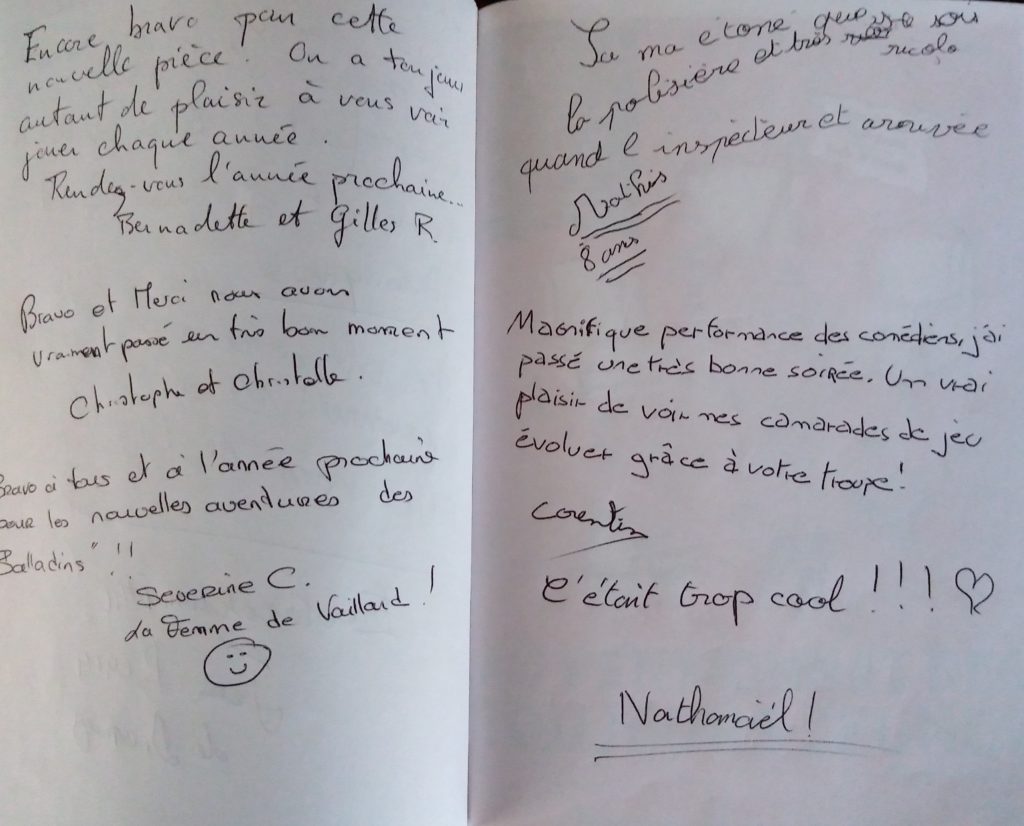 Encore bravo pour cette
nouvelle pièce. On a toujours
autant de plaisir à vous voir
jouer chaque année.
Rendez-vous l'année prochaine...
Bernadette et Gilles R.
Bravo et Merci nous avons
vraiment passé un très bon moment
Christophe et Christelle.
Bravo à tous et à l'année prochaine
pour les nouvelles aventures des
Balladins" !!
Severine C.
La Femme de Vaillard !
Sa ma etoné que se soi
la polisière et très
ricolo
quand l inspècteur et arouvée
Mathis
8 ans
Magnifique performance des comédiens, j'ai
passé une très bonne soirée. Un vrai
plaisir de voir mes camarades de jeu
évoluer grâce à votre troupe !
Corentin
C'était trop cool !!! ♡
Nathanaël !